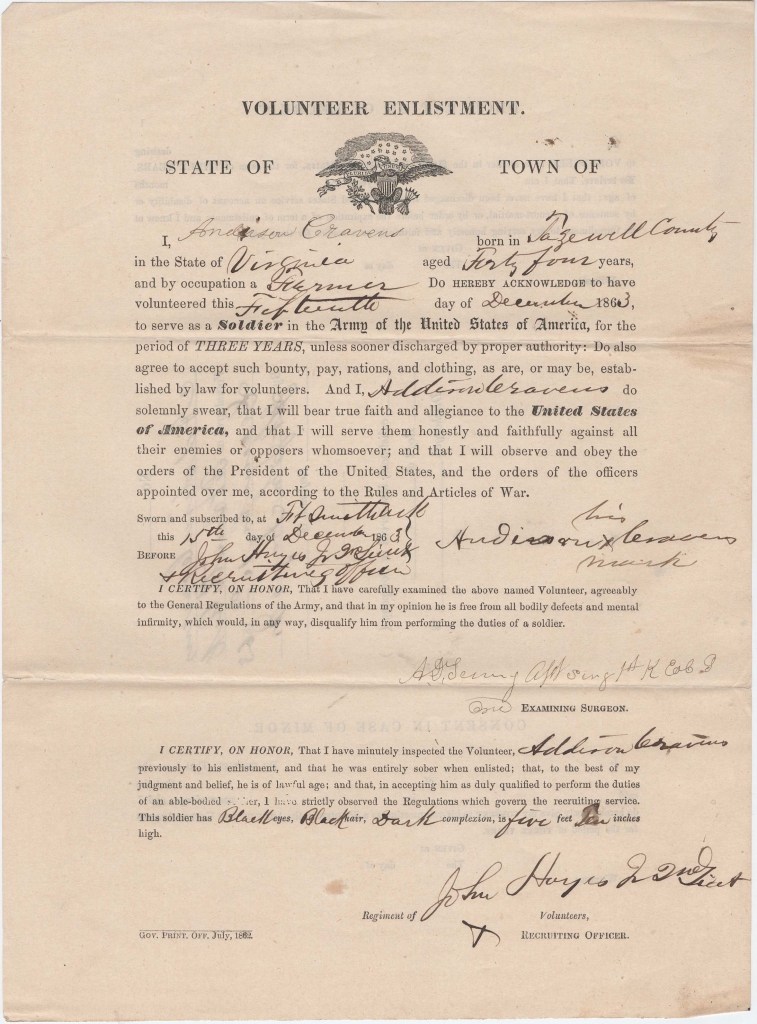 VOLUNTEER ENLISTMENT.
STATE OF TOWN OF
I, Andison Cravens born in Tazewell County
in the State of Virginia aged Forty four years,
and by occupation a Farmer Do HEREBY ACKNOWLEDGE to have
volunteered this Fifteenth day of December 1863,
to serve as a Soldier in the Army of the United States of America, for the
period of THREE YEARS, unless sooner discharged by proper authority: Do also
agree to accept such bounty, pay, rations, and clothing, as are, or may be, estab-
lished by law for volunteers. And I, Addison Cravens do
solemnly swear, that I will bear true faith and allegiance to the United States
of America, and that I will serve them honestly and faithfully against all
their enemies or opposers whomsoever; and that I will observe and obey the
orders of the President of the United States, and the orders of the officers
appointed over me, according to the Rules and Articles of War.
Sworn and subscribed to, at Ft Smith Ark
this 15th day of December 1863
BEFORE John Hayes Jr 2nd Lieut
& Recruiting Officer
his
Andison x Cravens
mark
I CERTIFY, ON HONOR, That I have carefully examined the above named Volunteer, agreeably
to the General Regulations of the Army, and that in my opinion he is free from all bodily defects and mental
infirmity, which would, in any way, disqualify him from performing the duties of a soldier.
Surg 1st K
EXAMINING SURGEON.
I CERTIFY, ON HONOR, That I have minutely inspected the Volunteer, Addison Cravens
previously to his enlistment, and that he was entirely sober when enlisted; that, to the best of my
judgment and belief, he is of lawful age; and that, in accepting him as duly qualified to perform the duties
of an able-bodied soldier, I have strictly observed the Regulations which govern the recruiting service.
This soldier has Black eyes, Black hair, Dark complexion, is five feet Ten inches
high.
John Hayes Jr 2nd Lieut
Regiment of Volunteers,
RECRUITING OFFICER.
GOV. PRINT. OFF. July, 1862.